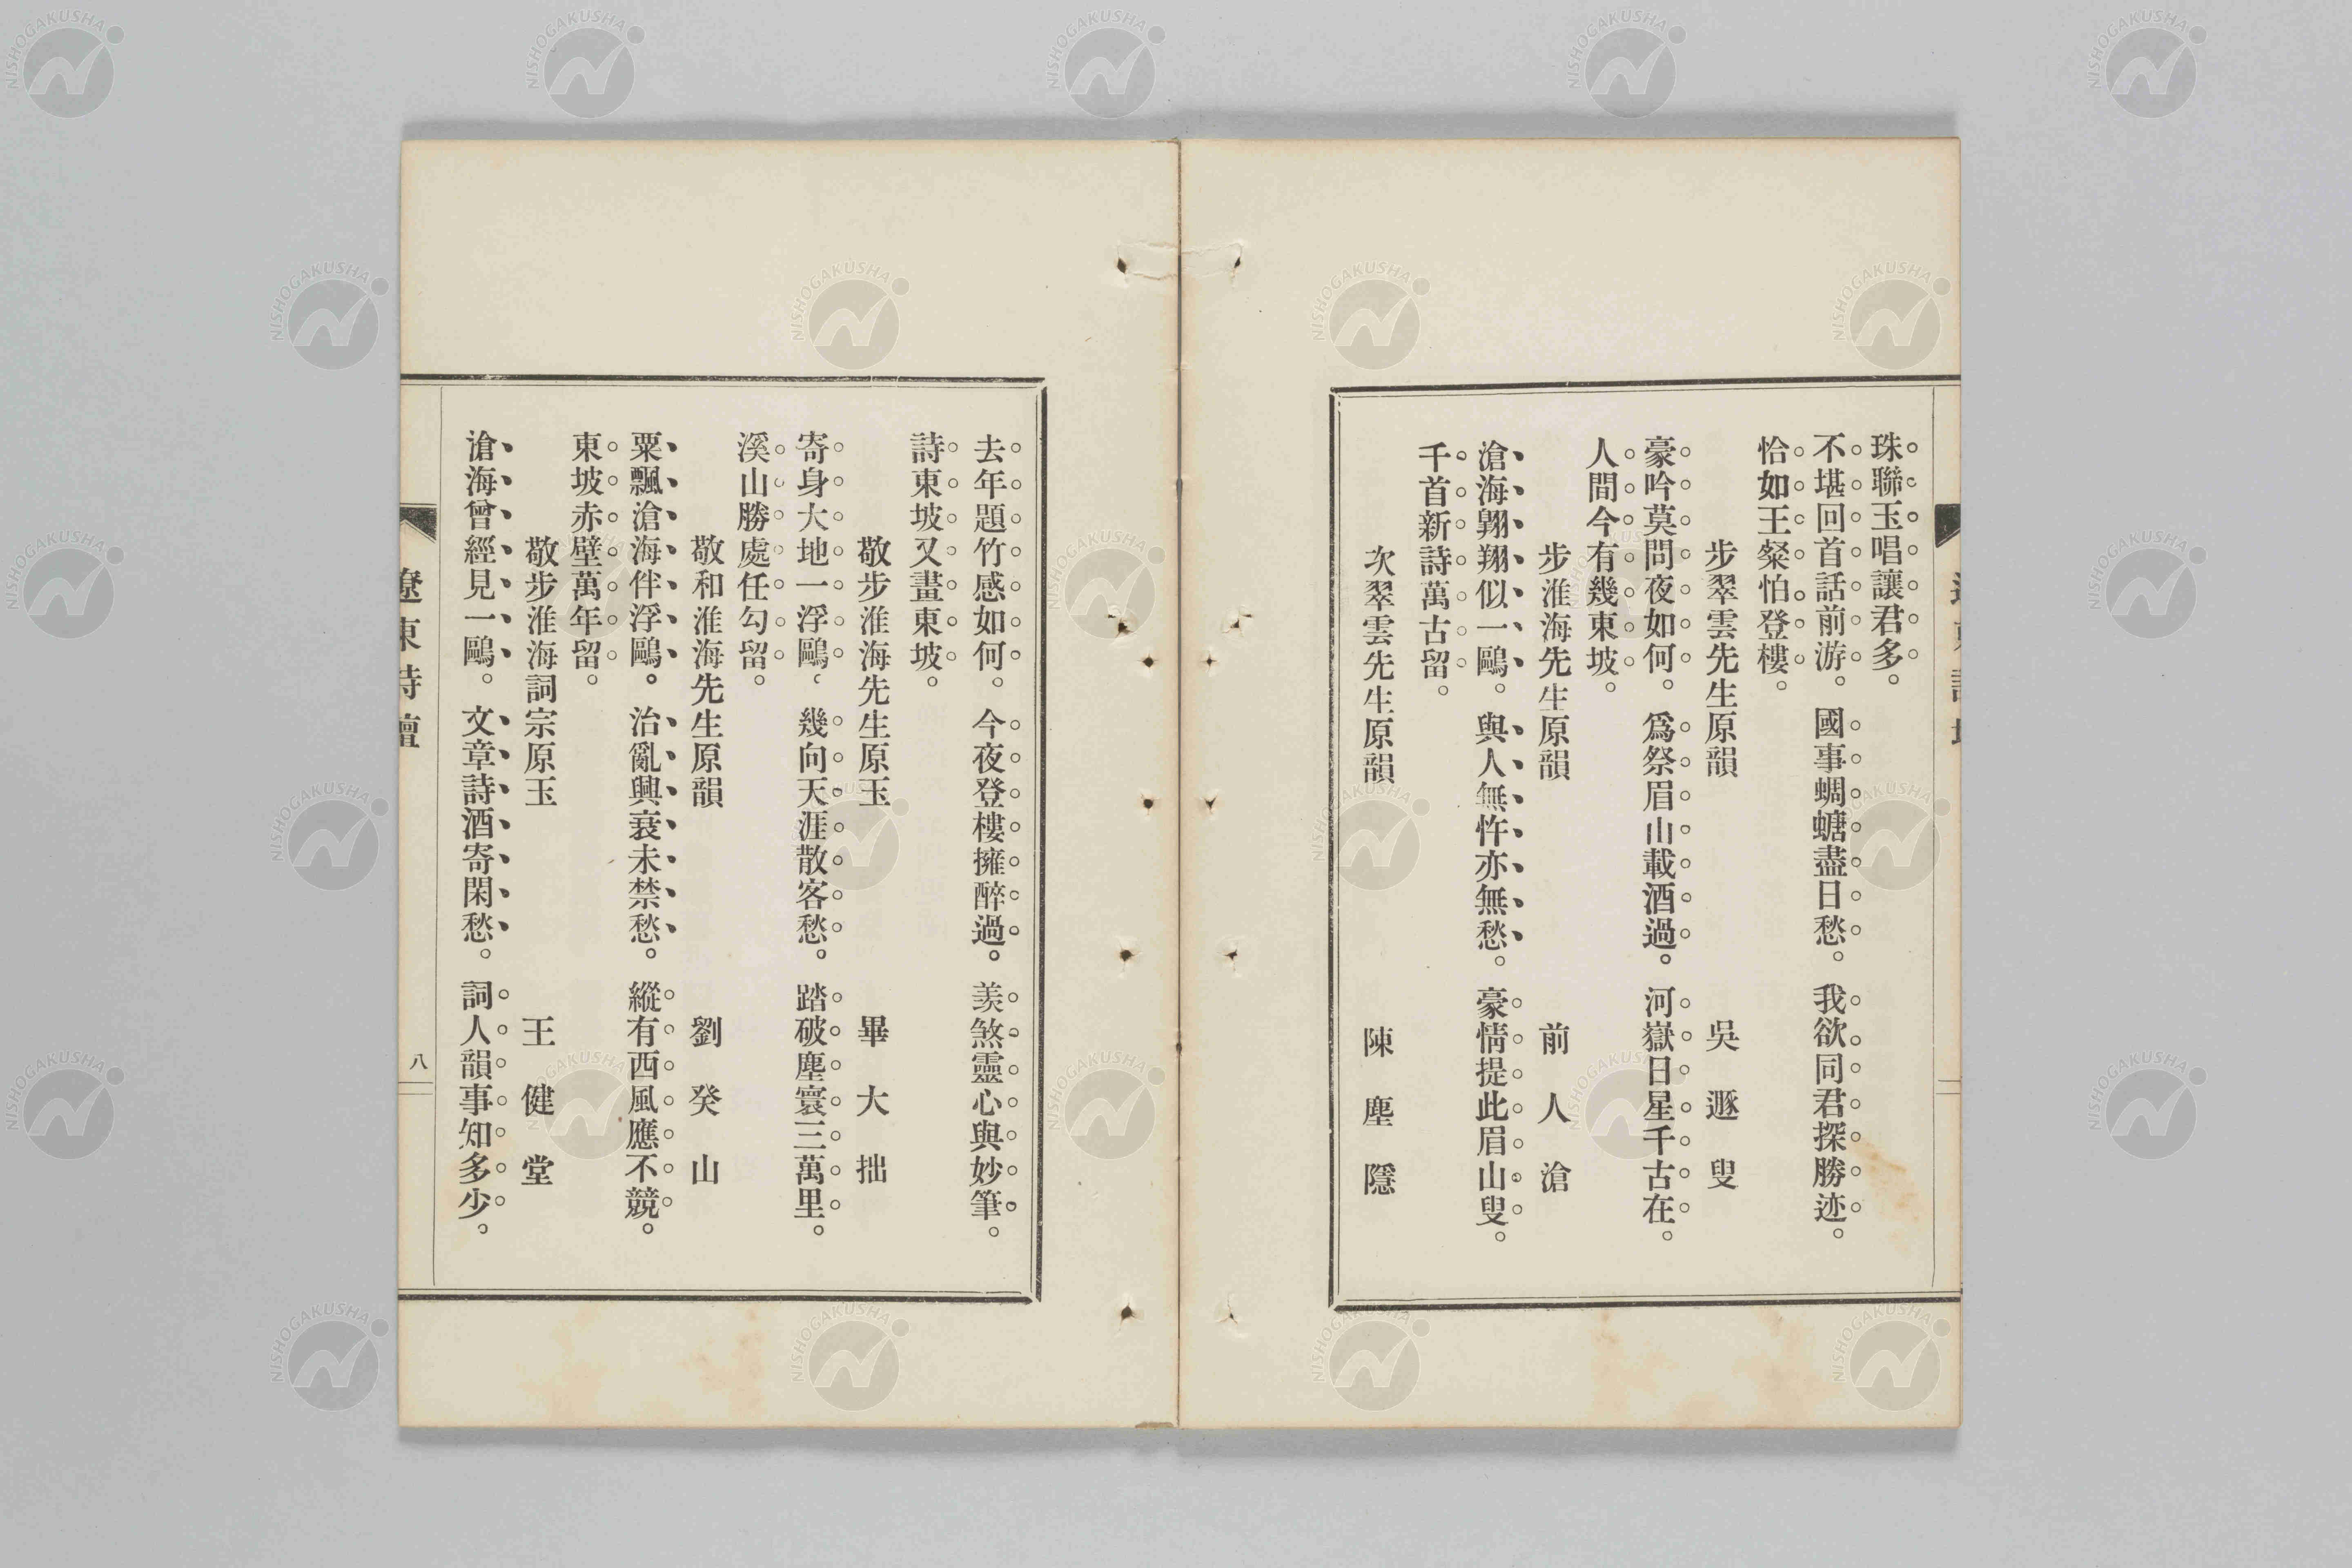 珠聯玉唱讓君多。
不堪回首話前游。國事蜩螗盡日愁。我欲同君探勝迹。
恰如王粲怕登樓。
步翠雲先生原韻　吳遯叟
豪吟莫問夜如何。爲祭眉山載酒過。河嶽日星千古在。
人間今有幾東坡。
步淮海先生原韻　前人滄
滄海翱翔似一鷗。與人無忤亦無愁。豪情提此眉山叟。
千首新詩萬古留。
次翠雲先生原韻　陳塵隱
去年題竹感如何。今夜登樓擁醉過。羨煞靈心與妙筆。
詩東坡又畫東坡。
敬步淮海先生原玉　畢大拙
寄身大地一浮鷗、幾向天涯散客愁。踏破塵寰三萬里。
溪山勝處任勾留。
敬和淮海先生原韻　劉癸山
粟飄滄海伴浮鷗。治亂興衰未禁愁。縱有西風應不競。
東坡赤壁萬年留。
敬步淮海詞宗原玉　王健堂
滄海曾經見一鷗。文章詩酒寄閑愁。詞人韻事知多少。
遼東詩壇
八
NISHOGAKUSHA